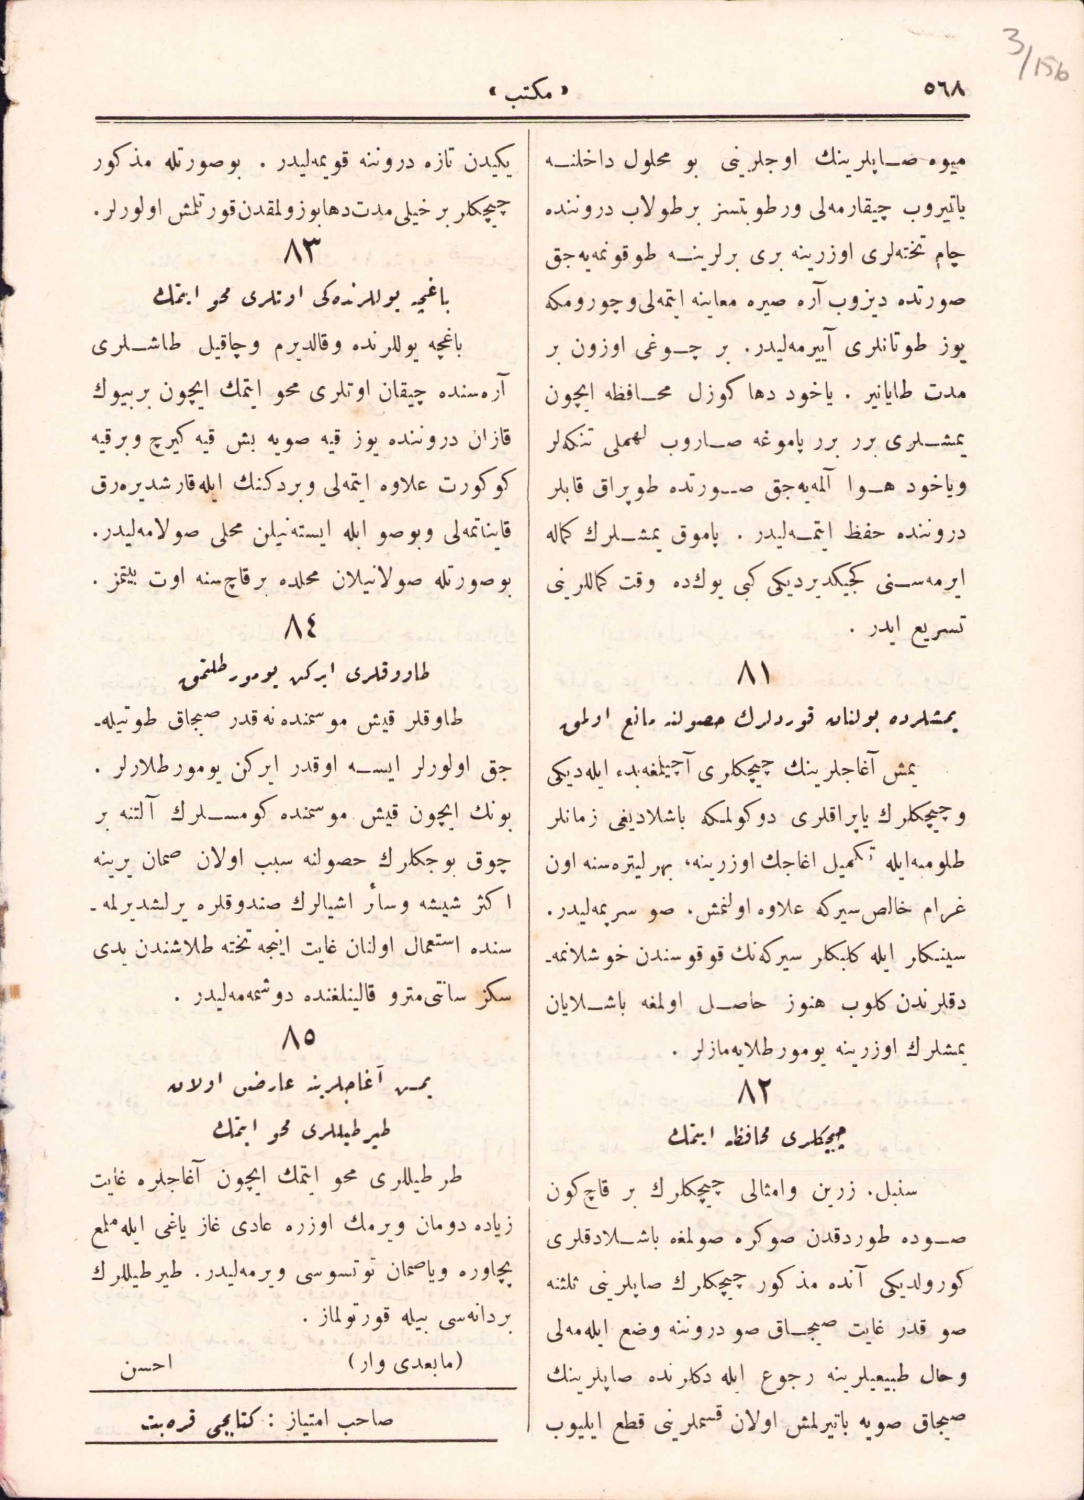 3/156
٥٦٨
« مكتب »
ميوه صاپلرينك اوجلرينى بو محلول داخلنه
باتيروب چيقارمه‌لى ورطوبتسز برطولاب دروننده
چام تخته‌لرى اوزرينه برى برلرينه طوقونمه‌يه‌جق
صورتده ديزوب آره صيره معاينه ايتمه‌لى وچورومكه
يوز طوتانلرى آييرمه‌ليدر. بر چوغى اوزون بر
مدت طايانير . ياخود دها كوزل محافظه ايچون
يمشلرى برر برر پاموغه صاروب لهملى تنكه‌لر
وياخود هوا آلمه‌يه‌جق صورتده طوپراق قابلر
دروننده حفظ ايتمه‌ليدر . پاموق يمشلرك كماله
ايرمه‌سنى كجيكديرديكى كبى يوك‌ده وقت كماللرينى
تسريع ايدر .
٨١
يمشلرده بولنان قوردلرك حصولنه مانع اولمق
يمش آغاجلرينك چيچكلرى آچيلمغه‌بدء ايله‌ديكى
وچيچكلرك ياپراقلرى دوكولمكه باشلاديغى زمانلر
طلومبه‌ايله تكميل اغاجك اوزرينه، بهر ليتره‌سنه اون
غرام خالص‌سيركه علاوه اولنمش، صو سرپمه‌ليدر.
سينكلر ايله كلبكلر سيركه‌نك قوقوسندن خوشلانمه‌ـ
دقلرندن كلوب هنوز حاصل اولمغه باشلايان
يمشلرك اوزرينه يومورطلايه‌مازلر .
٨٢
چيچكلرى محافظه ايتمك
سنبل، زرين وامثالى چيچكلرك بر قاچ‌كون
صوده طوردقدن صوكره صولمغه باشلادقلرى
كورولديكى آنده مذكور چيچكلرك صاپلرينى ثلثنه
صو قدر غايت صيجاق صو دروننه وضع ايله‌مه‌لى
وحال طبيعيلرينه رجوع ايله دكلرنده صاپلرينك
صيجاق صويه باتيرلمش اولان قسملرينى قطع ايليوب
يكيدن تازه دروننه قويمه‌ليدر . بوصورتله مذكور
چيچكلر برخيلى‌مدت‌دهابوزولمقدن‌قورتلمش اولورلر.
٨٣
باغچه يوللرنده‌كى اوتلرى محو ايتمك
باغچه يوللرنده وقالديرم وچاقيل طاشلرى
آره‌سنده چيقان اوتلرى محو ايتمك ايچون بربيوك
قازان دروننده يوز قيه صويه بش قيه كيرچ وبرقيه
كوكورت علاوه ايتمه‌لى وبردكنك ايله‌قارشديره‌رق
قايناتمه‌لى وبوصو ايله ايسته‌نيلن محلى صولامه‌ليدر.
بوصورتله صولانيلان محلده برقاچ‌سنه اوت بيتمز .
٨٤
طاووقلرى ايركن يومورطلتمق
طاوقلر قيش موسمنده نه‌قدر صيجاق طوتيله‌ـ
جق اولورلر ايسه اوقدر ايركن يومورطلارلر .
بونك ايچون قيش موسمنده كومسلرك آلتنه بر
چوق بوجكلرك حصولنه سبب اولان صمان يرينه
اكثر شيشه وسائر اشيالرك صندوقلره يرلشديرلمه‌ـ
سنده استعمال اولنان غايت اينجه تخته طلاشندن يدى
سكز سانتى‌مترو قالينلغنده دوشمه‌مه‌ليدر .
٨٥
يمش آغاجلرينه عارض اولان
طيرطيللرى محو ايتمك
طرطيللرى محو ايتمك ايچون آغاجلره غايت
زياده دومان ويرمك اوزره عادى غاز ياغى ايله‌ملمع
پچاوره وياصمان توتسوسى ويرمه‌ليدر. طيرطيللرك
بردانه‌سى بيله قورتولماز .
(مابعدى وار) احسن
صاحب امتياز : كتابجى قره‌بت